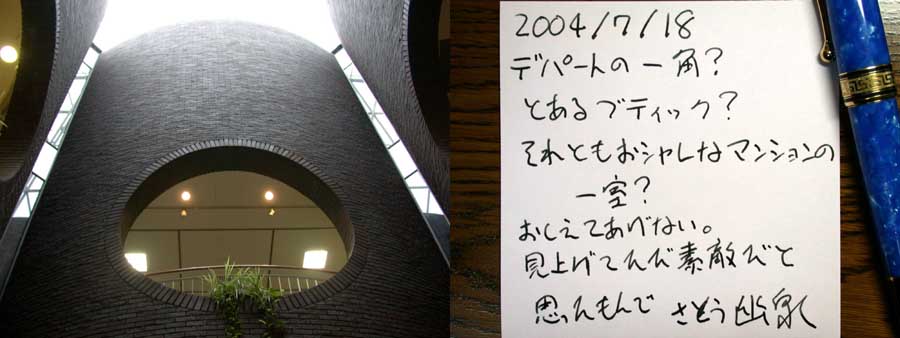 2004/7/18
デパートの一角?
とあるブティック?
それともおシャレなマンションの
一室?
おしえてあげない。
見上げてんだ素敵だと
思ったもんで さとう